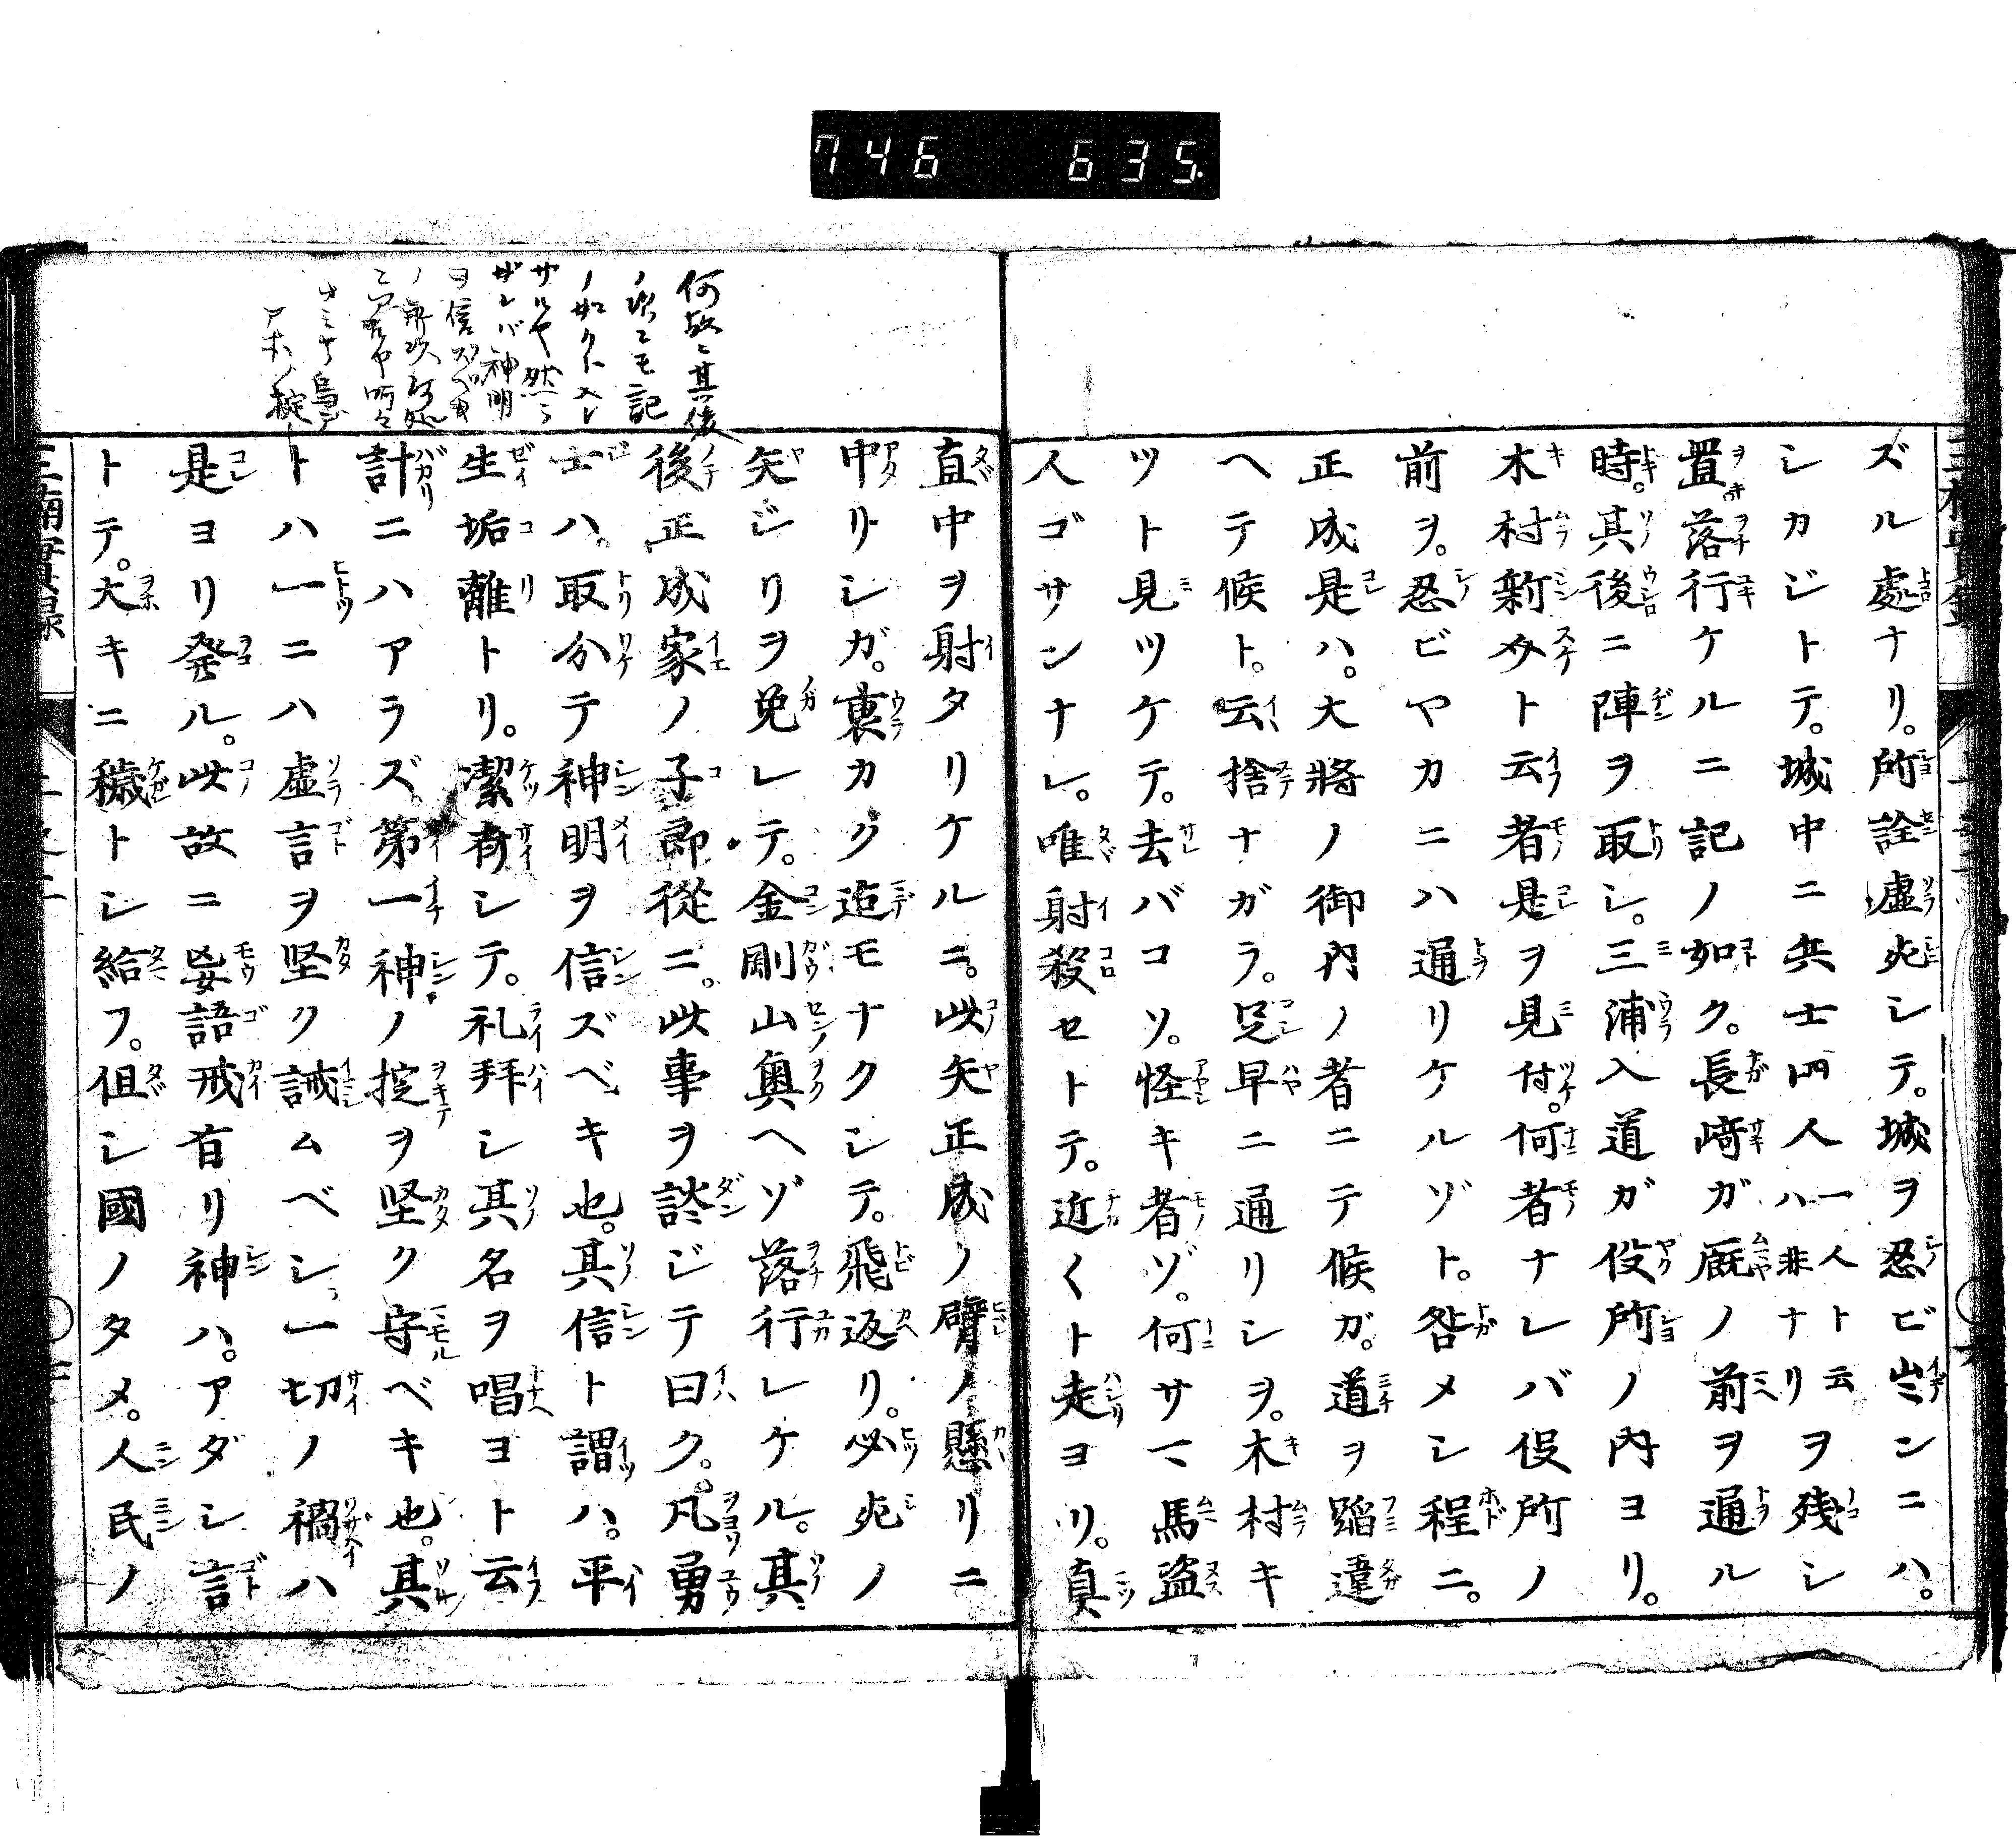 746 635.
ズル處ナリ。所詮虚死シテ。城ヲ忍ビ出ンニハ。
シカジトテ。城中ニ兵士四人ハ一人トナリ云ヲ残シ
置。落行ケルニ記ノ如ク。長﨑ガ厩ノ前ヲ通ル
時。其後ニ陣ヲ取シ。三浦入道ガ役所ノ内ヨリ。
木村新ト云者是ヲ見付。何者ナレバ役所ノ
前ヲ。忍ビヤカニハ通リケルゾト。咎メシ程ニ。
正成是ハ。大將ノ御内ノ者ニテ候ガ。道ヲ蹈違
ヘテ候ト。云捨ナガラ。足早ニ通リシヲ。木村キ
ツト見ツケテ。去バコソ。怪キ者ゾ。何サマ馬盗
人ゴサンナレ。唯射殺セトテ。近くト走ヨリ。真
直中ヲ射タリケルニ。此矢正成ノ臂ノ懸リニ
中リシガ。裏カク迠モナクシテ。飛返リ。必死ノ
矢ジリヲ免レテ。金剛山奥ヘゾ落行レケル。其
後正成家ノ子郎從ニ。此事ヲ談ジテ曰ク。凡勇
士ハ。取分テ神明ヲ信ズベキ也。其信ト謂ハ。平
生垢離トリ。潔斎シテ。礼拜シ其名ヲ唱ヨト云
計ニハアラズ。第一神ノ掟ヲ坚ク守ベキ也。其
トハ一ニハ虚言ヲ坚ク誡ムベシ。一切ノ禍ハ
是ヨリ発ル。此故ニ妄語戒有リ神ハ。アダシ言
トテ。大キニ穢トシ給フ。但シ國ノタメ。人民ノ
何故ニ其後
ノ次ニモ記
ノ如クト入レ
ザルヤ然ラ
ザレバ神明
ヲ信ズベキ